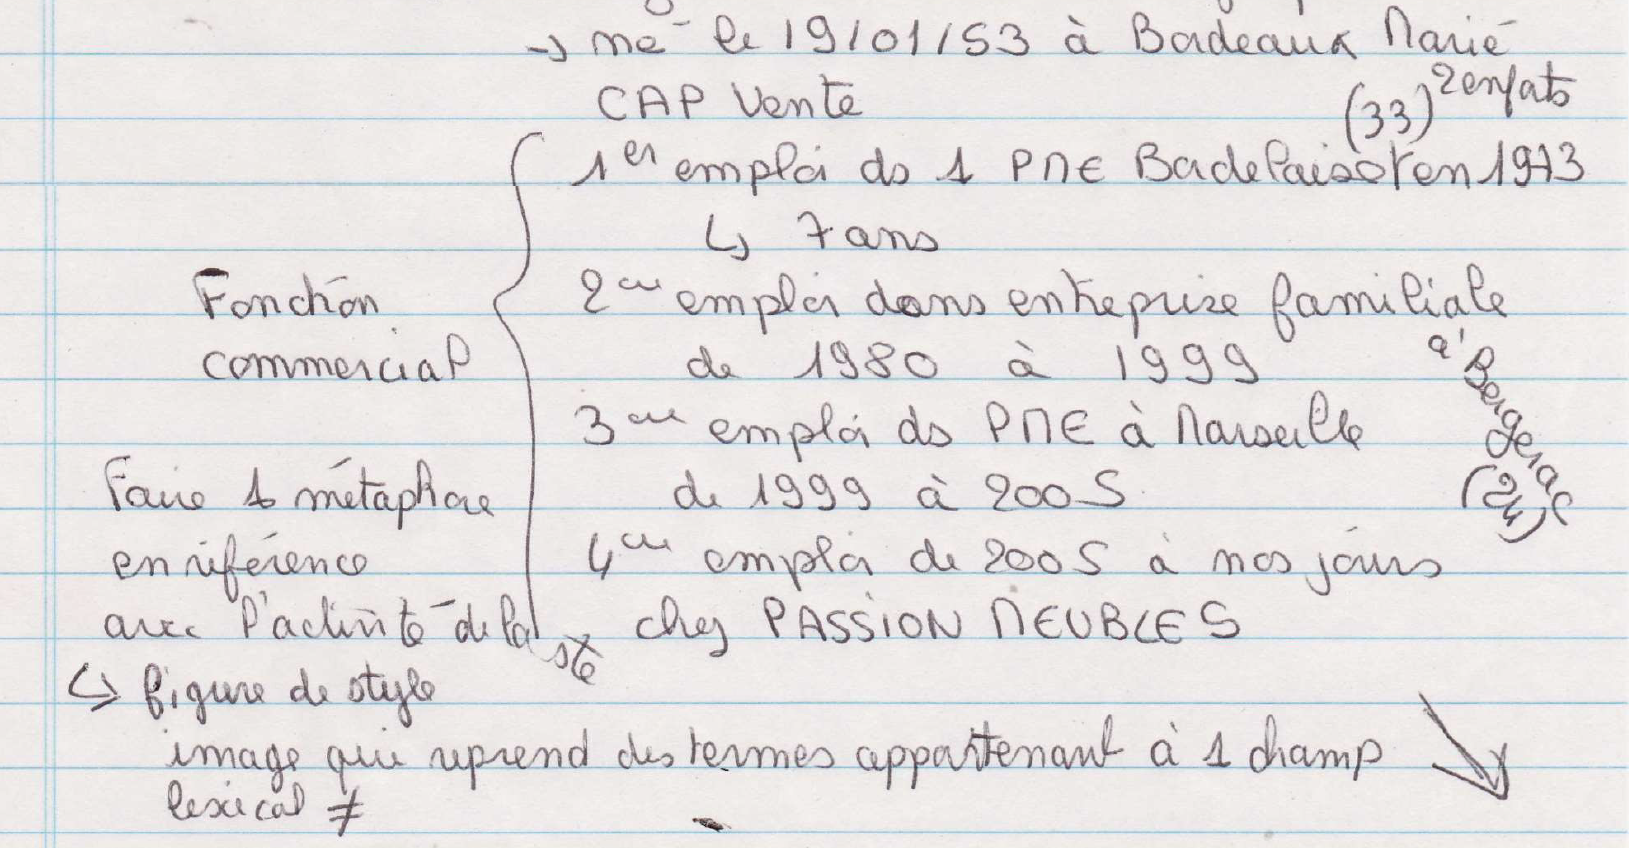 → né le 19/01/53 à Bordeaux Marié
(33) 2 enfats
CAP Vente
1er emploi ds 1 PME Bordelaise en 1973
↳ 7 ans
2eme emploi dans entreprise familiale
de 1980 à 1999
à Bergerac
(24)
3eme emploi ds PME à Marseille
de 1999 à 2005
4eme emploi de 2005 à nos jours
chez PASSION MEUBLES
Fonction
commercial
Faire 1 métaphore
en référence
avec l'activité de la sté
↳ figure de style
image qui reprend des termes appartenant à 1 champ
lexical ≠